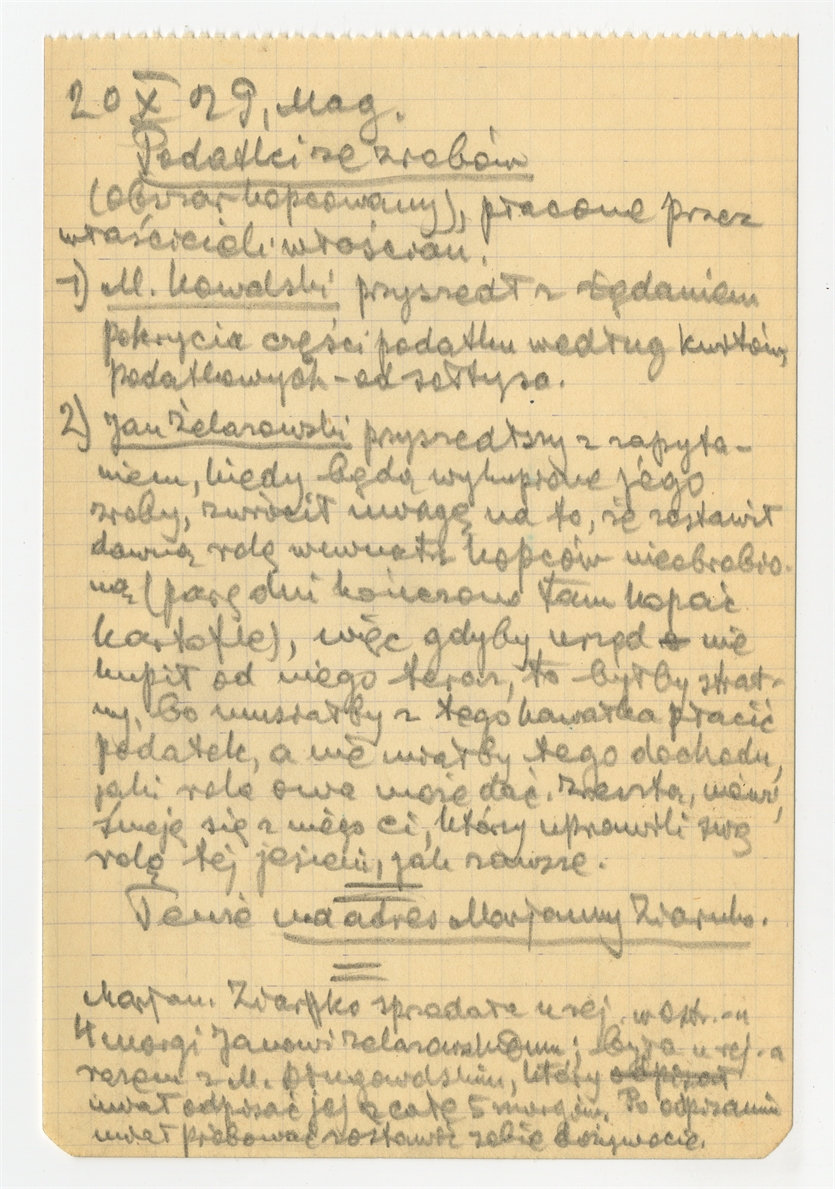 20 X 29, Mag.
Podatki ze zrobów
(obszar kopcowany), płacone przez
właścicieli włościan.
1) M. Kowalski przyszedł z żądaniem
pokrycia części podatku według kwitów
podatkowych – od sołtysa.
2) Jan Żelazowski przyszedłszy z zapyta-
niem, kiedy będą wykupione jego
zroby, zwrócił uwagę na to, że zostawił
dawną rolę wewnątrz kopców nieobrobio-
ną (parę dni kończono tam kopać
kartofle), więc gdyby urząd nie
kupił od niego teraz, to byłby strat-
ny, bo musiałby z tego kawałka płacić
podatek, a nie miałby tego dochodu,
jaki rola owa może dać. Zresztą, mówi,
śmieją się z niego ci, którzy uprawili swą
rolę tej jesieni, jak zawsze.
Tenże nad adres Marjanny Ziarnko.
Marjan. Ziarnko sprzedała u rej. w Ostr.-u
4 morgi Janowi Żelazowskiemu; była u rej-a
razem z M. Długowolskim, który odpisał
miał odpisać jej całe 5 morgów. Po odpisaniu
miał próbować zostawić sobie dożywocie.